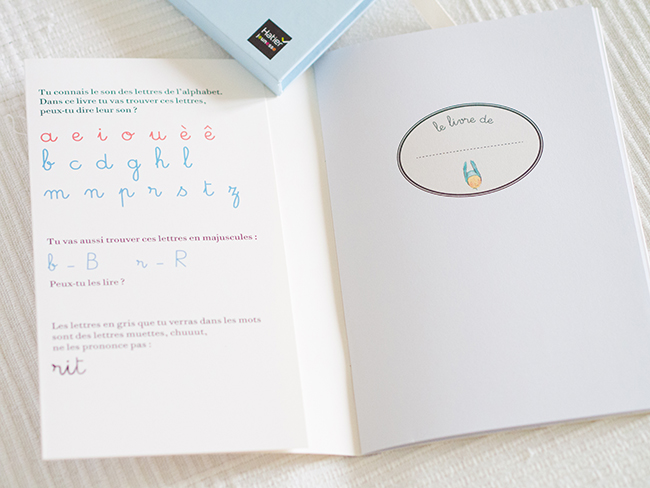 Hatier
jeunesse
Tu connais le son des lettres de l'alphabet.
Dans ce livre tu vas trouver ces lettres,
peux-tu dire leur son ?
a e i o u è ê
b c d g h l
m n p r s t z
Tu vas aussi trouver ces lettres en majuscules :
b - B r - R
Peux-tu les lire ?
Les lettres en gris que tu verras dans les mots
sont des lettres muettes, chuuut,
ne les prononce pas :
rit
le livre de